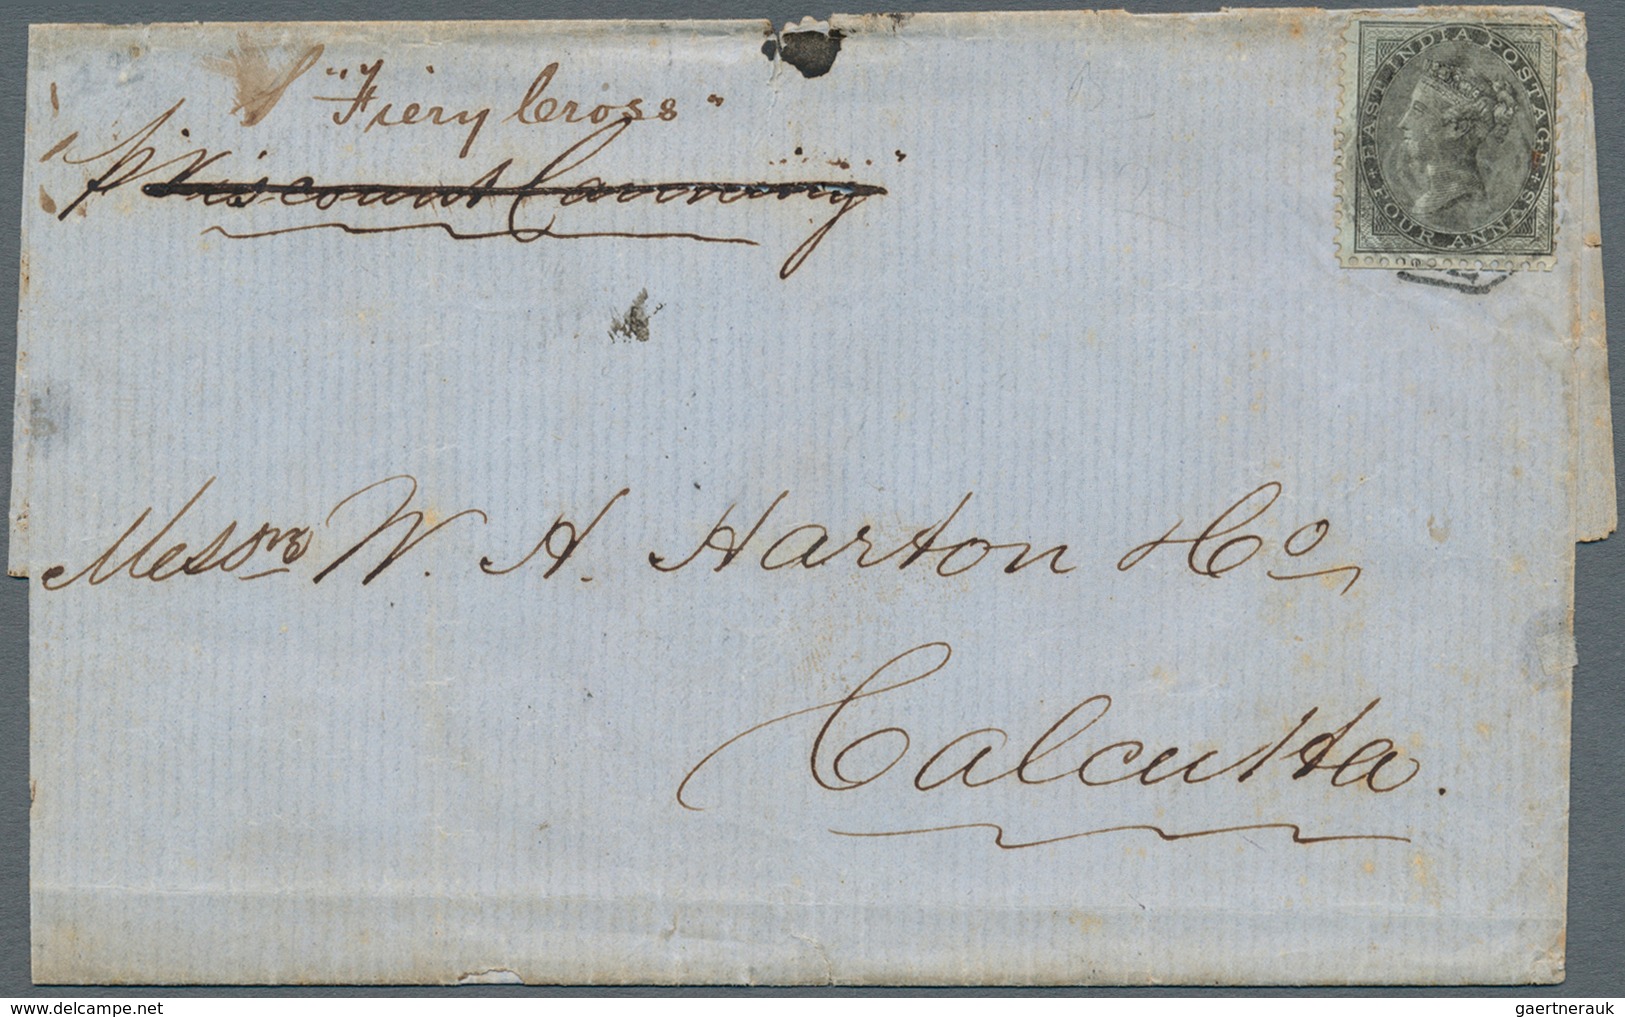 "Fiery Cross"
p Viscount Canning"
EAST INDIA POSTAGE
FOUR ANNAS
Messrs W. A. Harton & Co
Calcutta.
gaertnerauk / www.delcampe.net